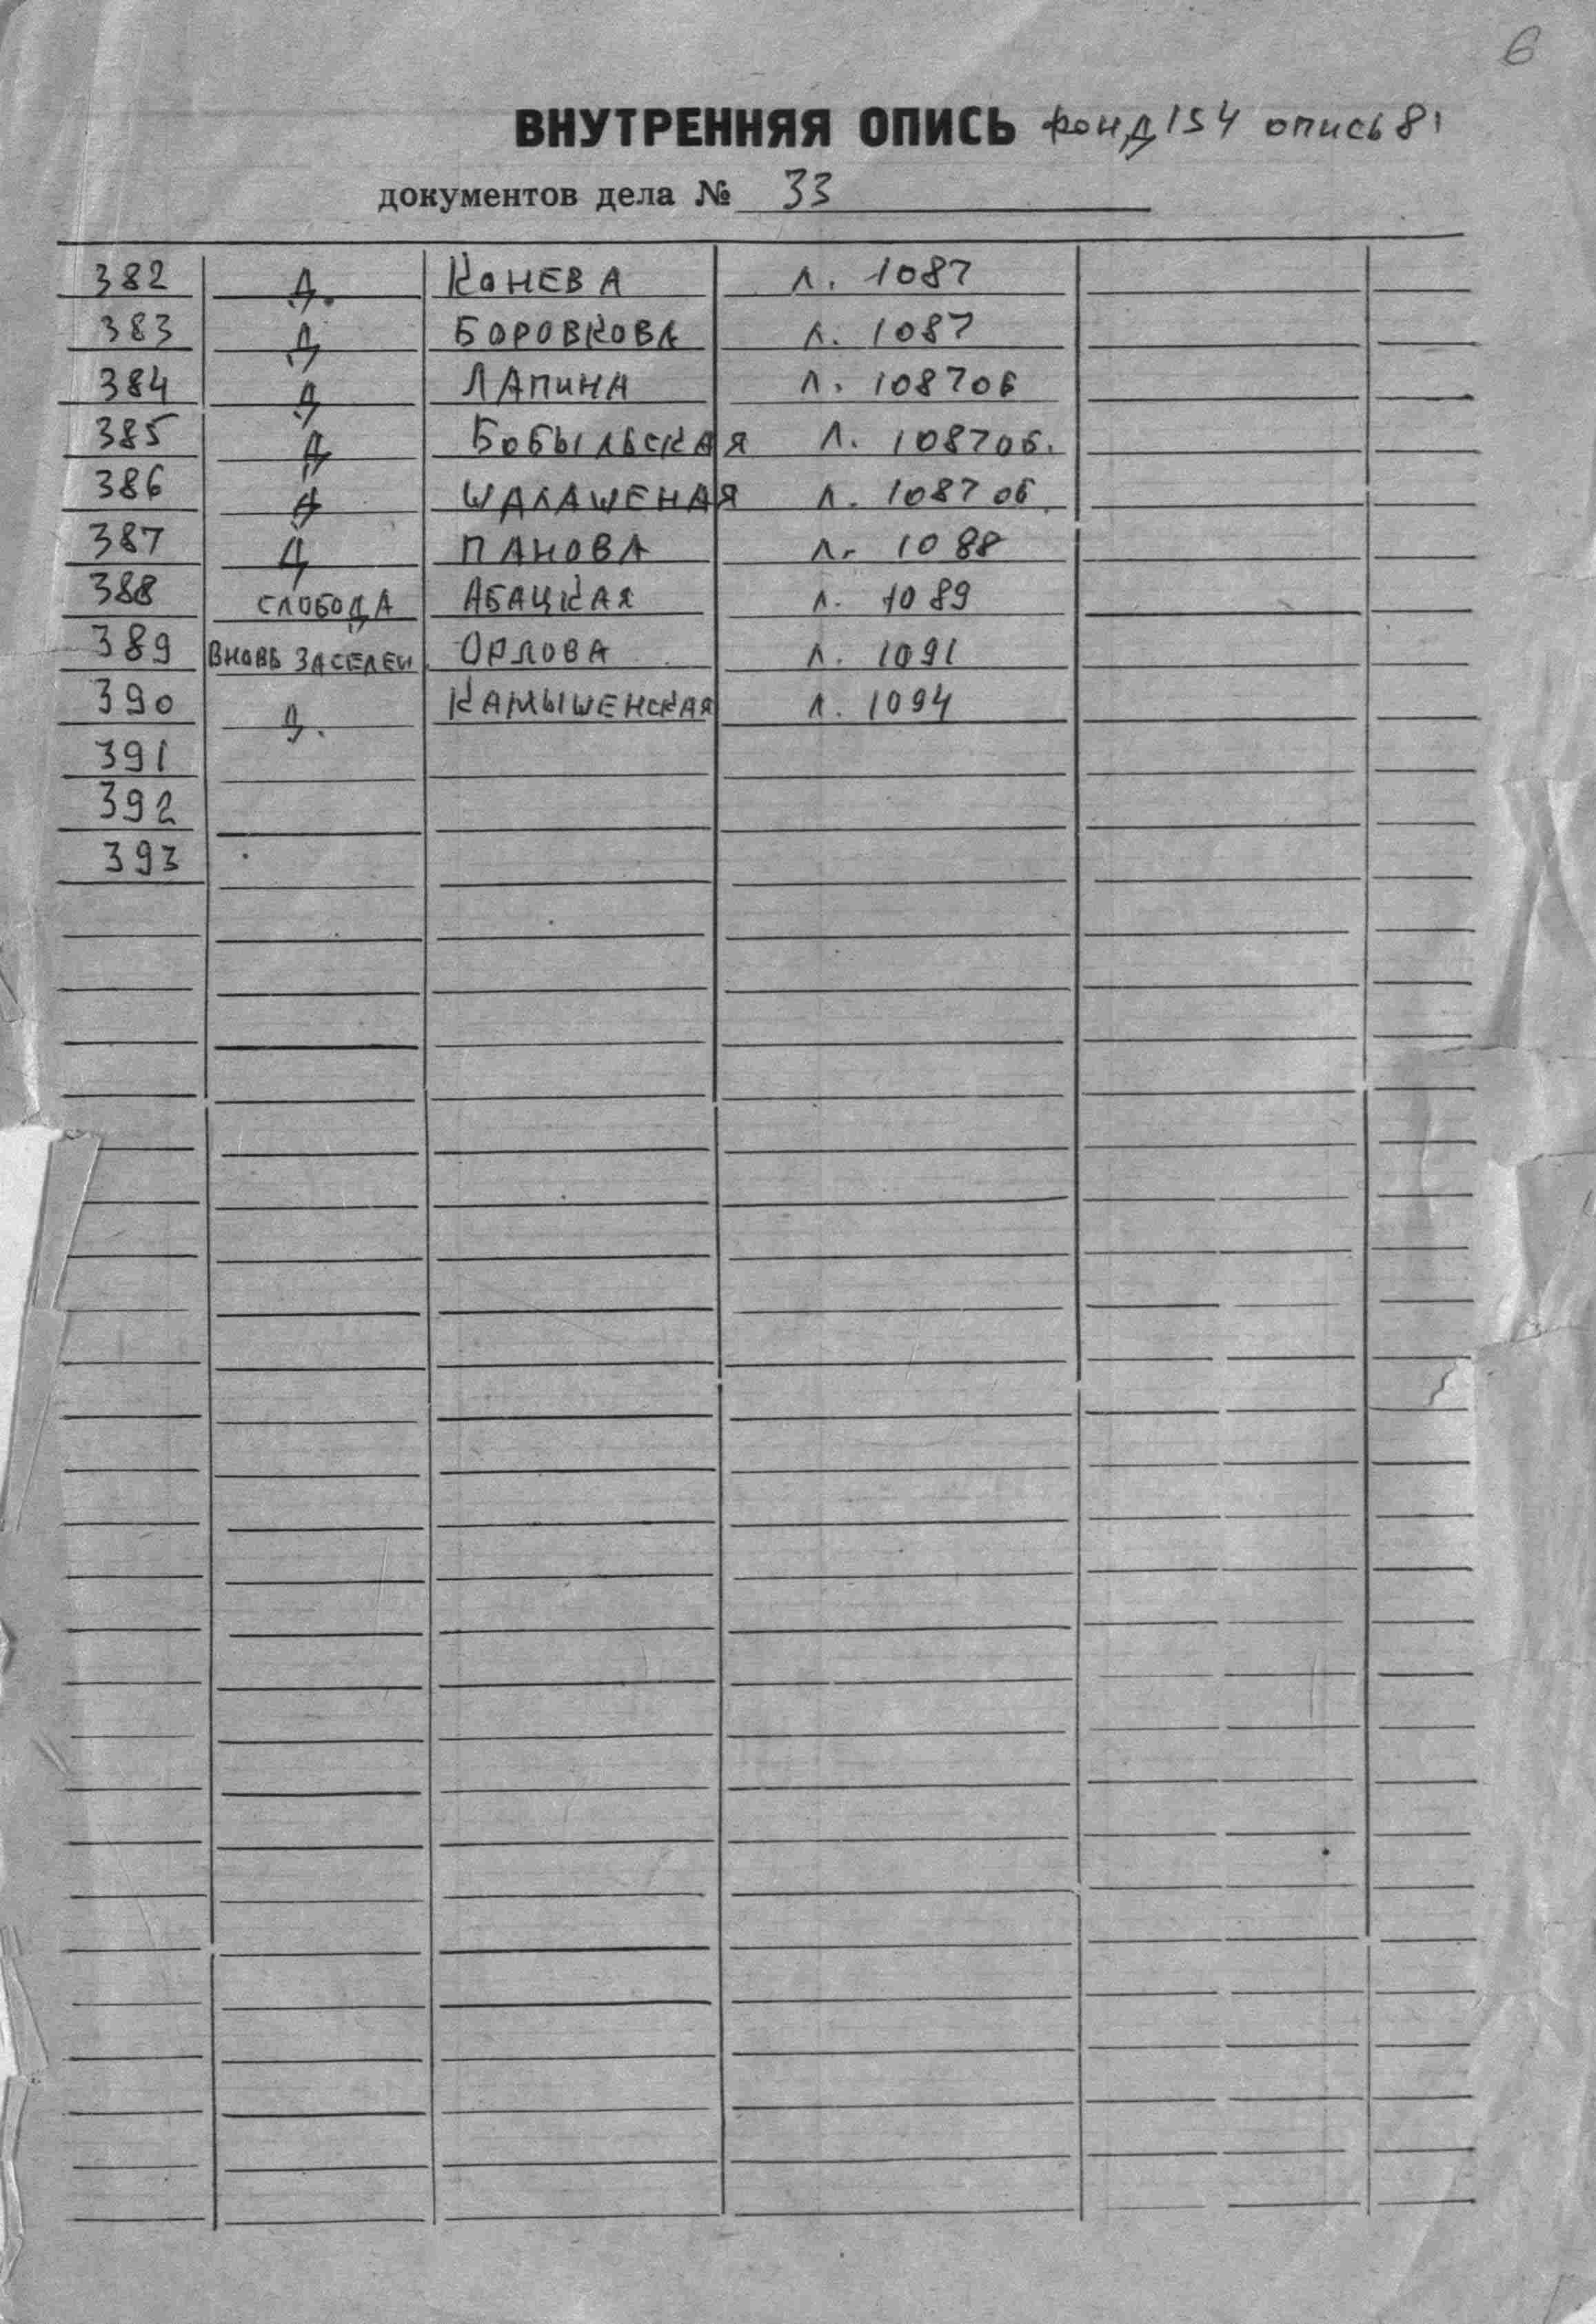 6
ВНУТРЕННЯЯ ОПИСЬ фонд 154 опись 81
документов дела № 33
382 Д. КОНЕВА Л. 1087
383 Д БОРОВКОВА Л. 1087
384 Д ЛАПИНА Л. 1087об
385 Д БОБЫЛЬСКАЯ Л. 1087об.
386 Д ШАЛАШЕНАЯ Л. 1087об.
387 Д ПАНОВА Л. 1088
388 СЛОБОДА АБАЦКАЯ Л. 1089
389 ВНОВЬ ЗАСЕЛЕН. ОРЛОВА Л. 1091
390 Д. КАМЫШЕНСКАЯ Л. 1094
391
392
393